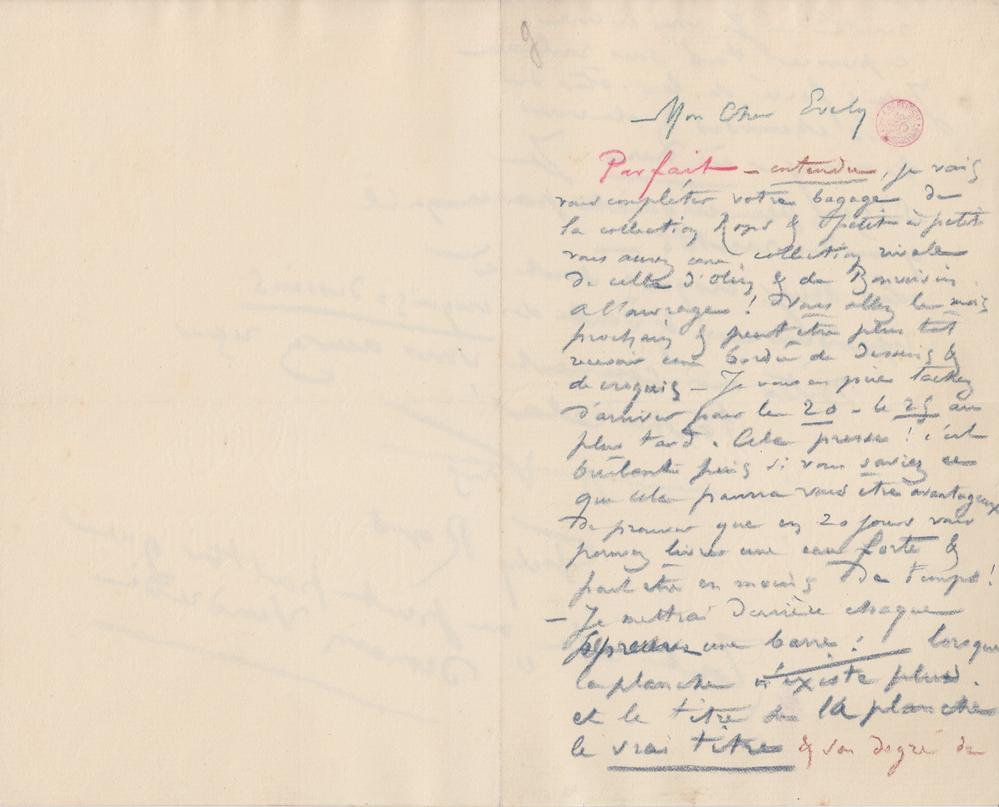 Mon Cher Evely
Parfait – entendu, je vais
vous complèter votre bagage de
la collection Rops & petit à petit
vous aurez une collection rivale
de celle d'Olin & de Bonvoisin.
à l'ouvrage ! Vous allez le mois
prochain & peut etre plus tot
recevoir une bordée de dessins &
de croquis – Je vous en prie tachez
d'arriver pour le 20 – le 25 au
plus tard. Cela presse ! c'est
brûlant puis si vous saviez ce
que cela pourra vous être avantageux
de prouver que en 20 jours vous
pouvez livrer une eau forte &
peut etre en moins de temps !
– Je mettrai derrière chaque
épreuve une barre : lorsque
la planche n'existe plus.
et le titre de la planche
le vrai titre & son degré de